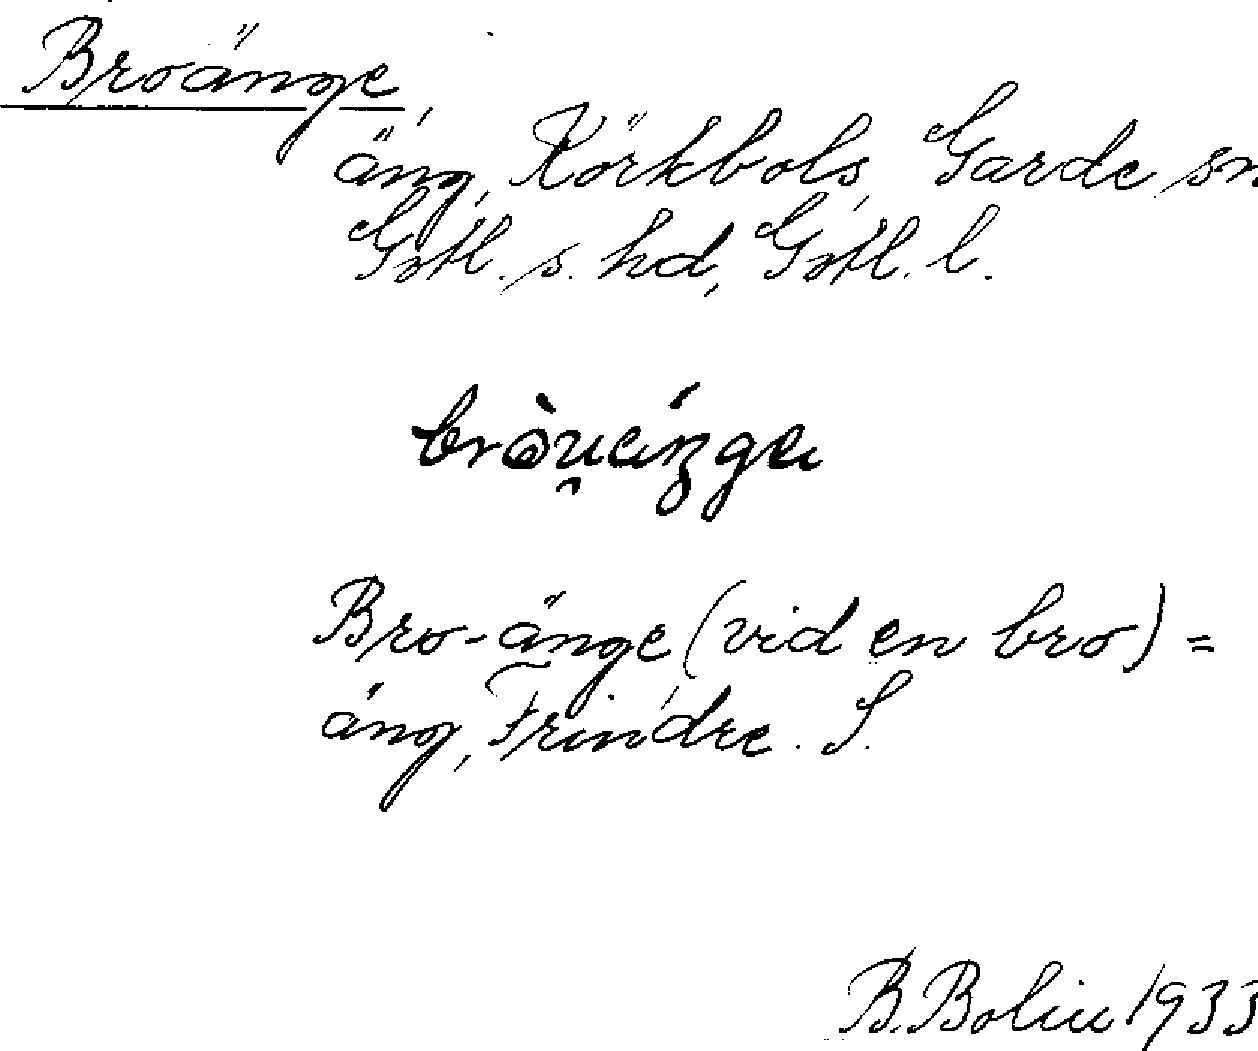 Broänge,
äng, Körkbols, Garde sn
Gotl. s. hd, Gotl. l.
Bro-änge (vid en bro) =
äng, Frindre. S.
B. Bolin 1933